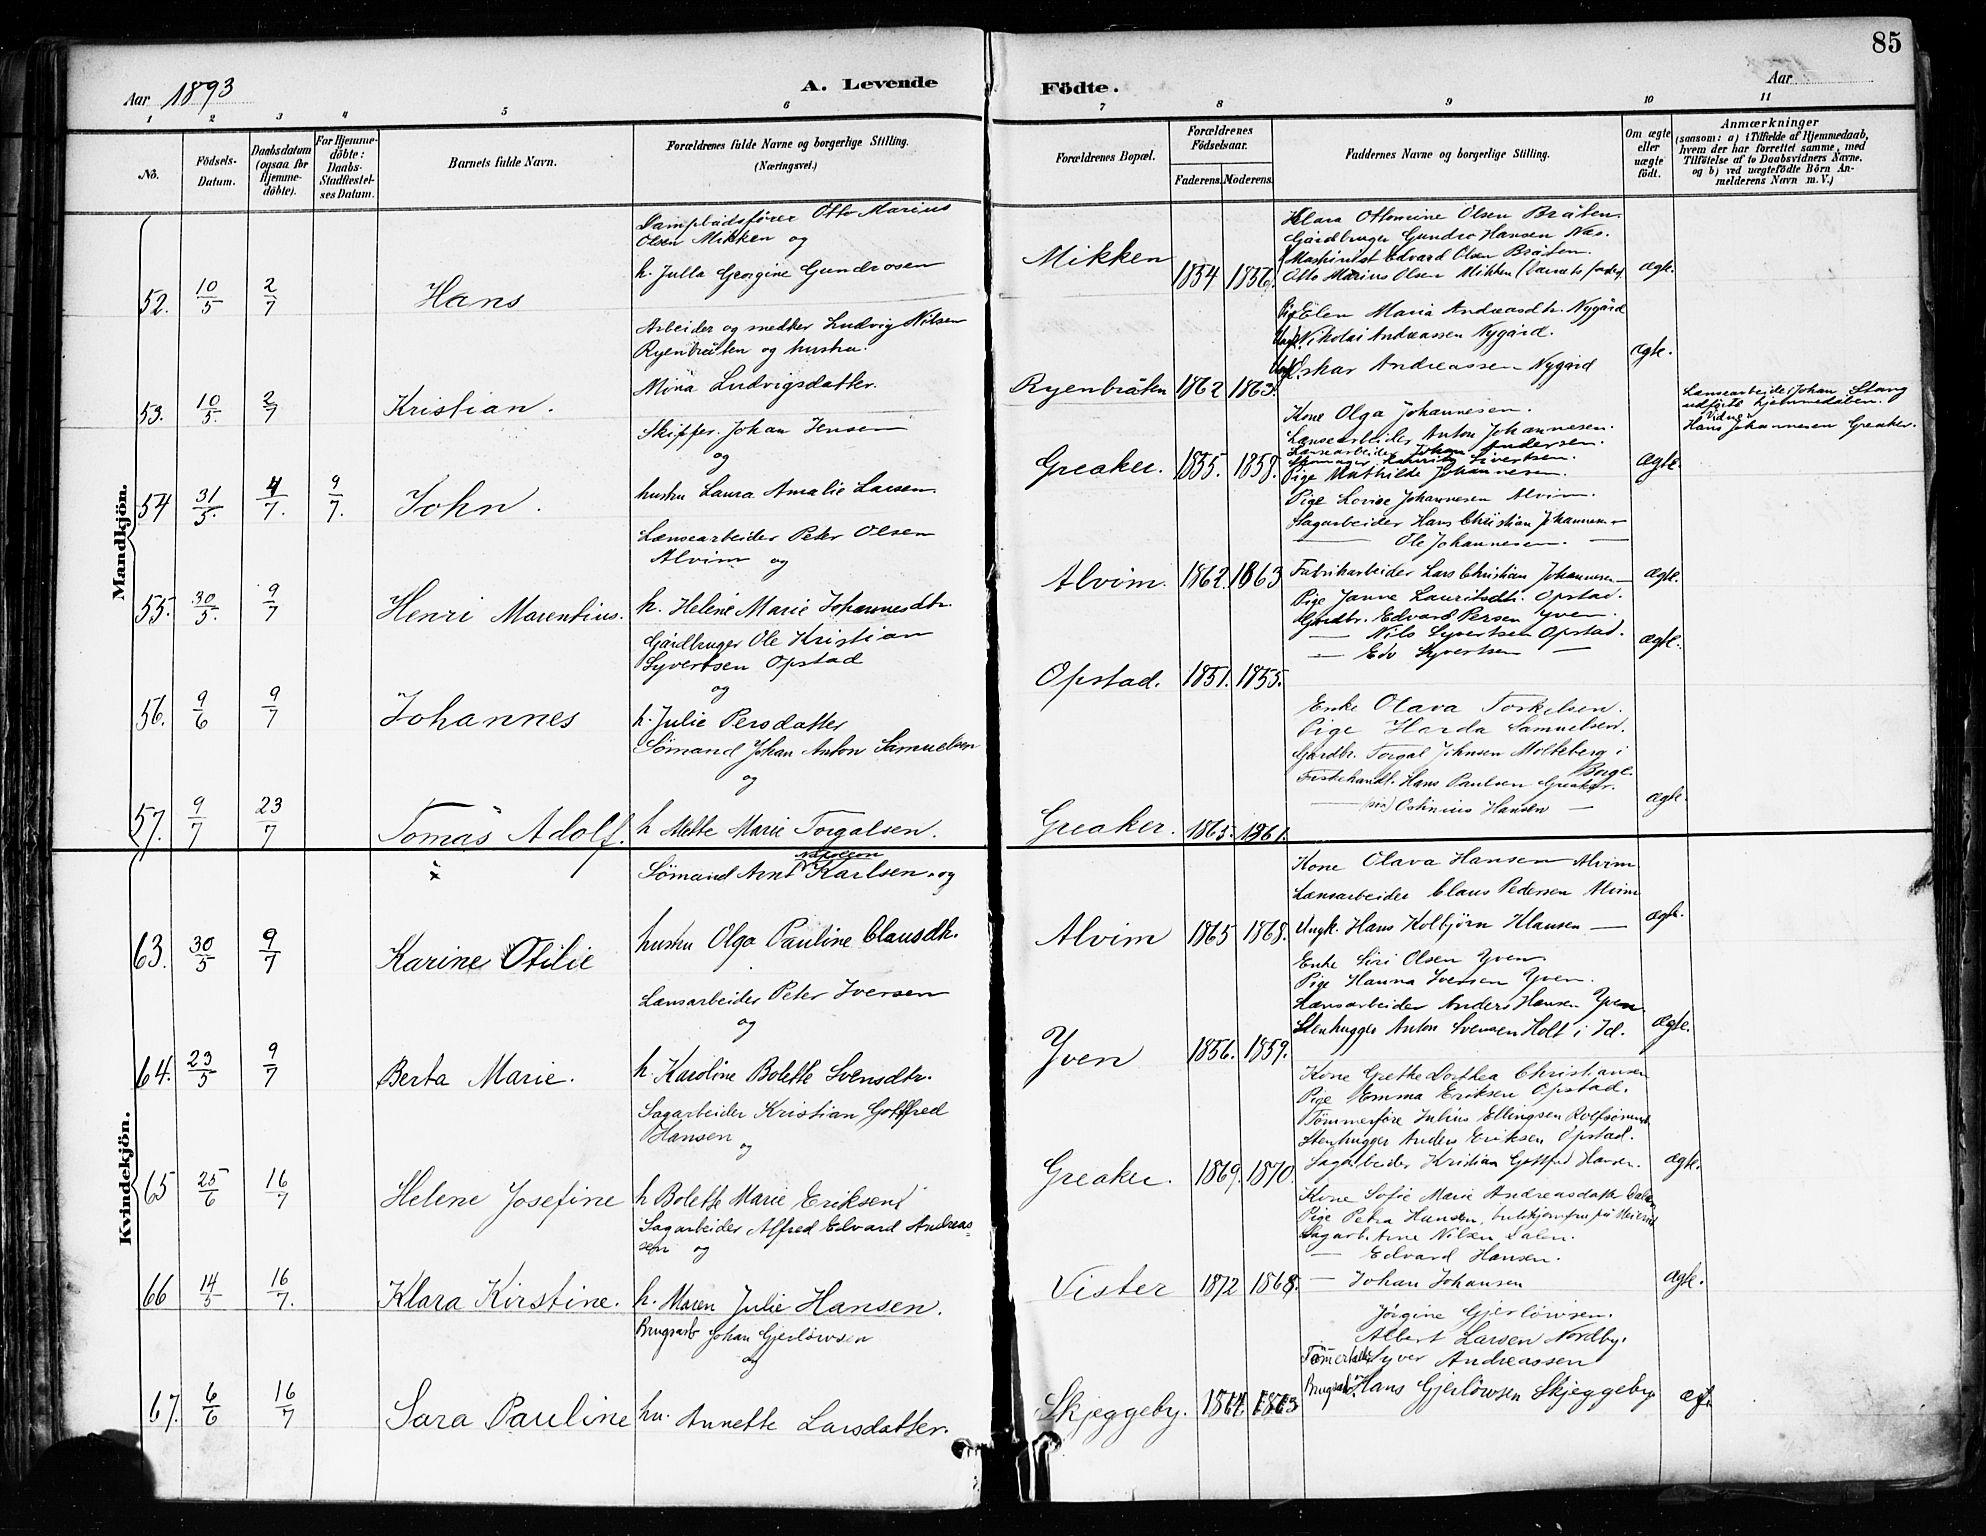 85
Aar 1893
A. Levende Födte.
Aar
1 2 3 4 5 6 7 8 9 10 11
No.
Födsels-Datum.
Daabsdatum (ogsaa for Hjemme-döbte).
For Hjemme-döbte: Daabs-Stadfæstel-ses Datum.
Barnets fulde Navn.
Forældrenes fulde Navne og borgerlige Stilling. (Næringsvei.)
Forældrenes Bopæl.
Forældrenes Födselsaar.
Faderens. Moderens.
Faddernes Navne og borgerlige Stilling.
Om ægte eller uægte födt.
Anmærkninger
(saasom: a) i Tilfælde af Hjemmedaab, hvem der har forrettet samme, med Tilföielse af to Daabsvidners Navne. og b) ved uægtefödte Börn An-melderens Navn m. V.)
Mandkjön.
52. 10/5 2/7 Hans
Dampbådsfører Otto Marius
Olsen Mikken og
h. Julla Georgine Gundrosen
Mikken 1854 1856.
Klara Ottomine Olsen Bråten.
Gårdbruger Gundro Hansen Næs.
Maskinist Edvard Olsen Bråten.
Otto Marius Olsen Mikken (barnets fader)
ægte.
53. 10/5 2/7 Kristian.
Arbeider og medker Ludvig Nilsen
Ryenbråten og hustru.
Mina Ludvigsdatter.
Ryenbråten 1862 1863.
Pige Elen Maria Andreasdtr. Nygård
Ungk. Nikolai Andreassen Nygård.
Ungk. Oskar Andreassen Nygård
ægte.
54 31/5. 4/7. 9/7. John.
Skipper. Johan Jensen
og
hustru Laura Amalie Larsen.
Greaker. 1855. 1858.
Kone Olga Johannesen.
Lænsearbeider Anton Johannesen.
Lænsearbeider Johan Andersen.
Pige Mathilde Johannesen.
ægte.
Lænsearbeider Johan Stang
udförte hjemmedåben.
Vidne
Hans Johannesen Greaker.
55. 30/5. 9/7 Henri Marentius.
Lænsearbeider Peter Olsen
Alvim og
h. Heline Marie Johannesdtr.
Alvim. 1862. 1863
Pige Lovise Johannesen Alvim.
Sagarbeider Hans Christian Johannesen —
— Ole Johannesen. —
Fabrikarbeider Lars Christian Johannesen —
ægte.
56. 9/6 9/7 Johannes
Gårdbruger Ole Kristian
Syvertsen Opstad
og
h. Julie Persdatter
Opstad. 1851. 1855.
Pige Janne Lauritsdtr. Opstad.
Gårdbr. Edvard Persen Yven.
— Nils Syvertsen Opstad.
— Edv Syvertsen —
ægte.
57. 9/7 23/7 Tomas Adolf.
Sömand Johan Anton Samuelsen
og
h Mette Marie Torgalsen.
Greaker. 1865. 1861.
Enke Olava Torkelsen.
Pige Harda Samuelsen.
Gårdbr. Torgal Johnsen Molteberg i
Borge.
Fiskehandl. Hans Paulsen Greaker.
— Ostinius Hansen —
ægte.
Kvindekjön.
63. 30/5 9/7 Karine Otilie
Sömand Arnt Napoleon Karlsen. og
hustru Olga Pauline Clausdtr.
Alvim 1865 1868.
Kone Olava Hansen Alvim
Lænsarbeider Claus Pedersen Alvim
Ungk. Hans Kolbjörn Klausen —
ægte.
64. 23/5 9/7 Berta Marie.
Lænsarbeider Peter Iversen
og
h. Karoline Bolette Svensdtr.
Yven 1856. 1859.
Enke Siri Olsen Yven.
Pige Hanna Iversen Yven.
Lænsarbeider Anders Hansen Yven.
Stenhugger Anton Svensen Holt i Id.
ægte.
65 25/6 16/7 Helene Josefine
Sagarbeider Kristian Gotfred
Hansen og
h Bolette Marie Eriksen
Greaker. 1869. 1870.
Kone Grethe Dorthea Christiansen
Pige Emma Eriksen Opstad.
Tömmerföre Julius Ellingsen
Stenhugger Anders Eriksen Opstad.
Sagarbeider Kristian Gotfred Hansen.
ægte.
66 14/5 16/7. Klara Kirstine.
Sagarbeider Alfred Edvard Andreas-
sen og
h. Maren Julie Hansen.
Vister 1872 1868.
Kone Sofie Marie Andreasdatter Dalen
Pige Petra Hansen,
Sagarb. Arne Nilsen Dalen.
— Edvard Hansen.
— Johan Johansen
ægte.
67. 6/6 16/7 Sara Pauline
Brugsarb Johan Gjerlöwsen
og
hu. Annette Larsdatter.
Skjeggeby.
Jörgine Gjerlöwsen.
Albert Larsen Nordby.
Syver Andreassen
Brugsarb. Hans Gjerlöwsen Skjeggeby